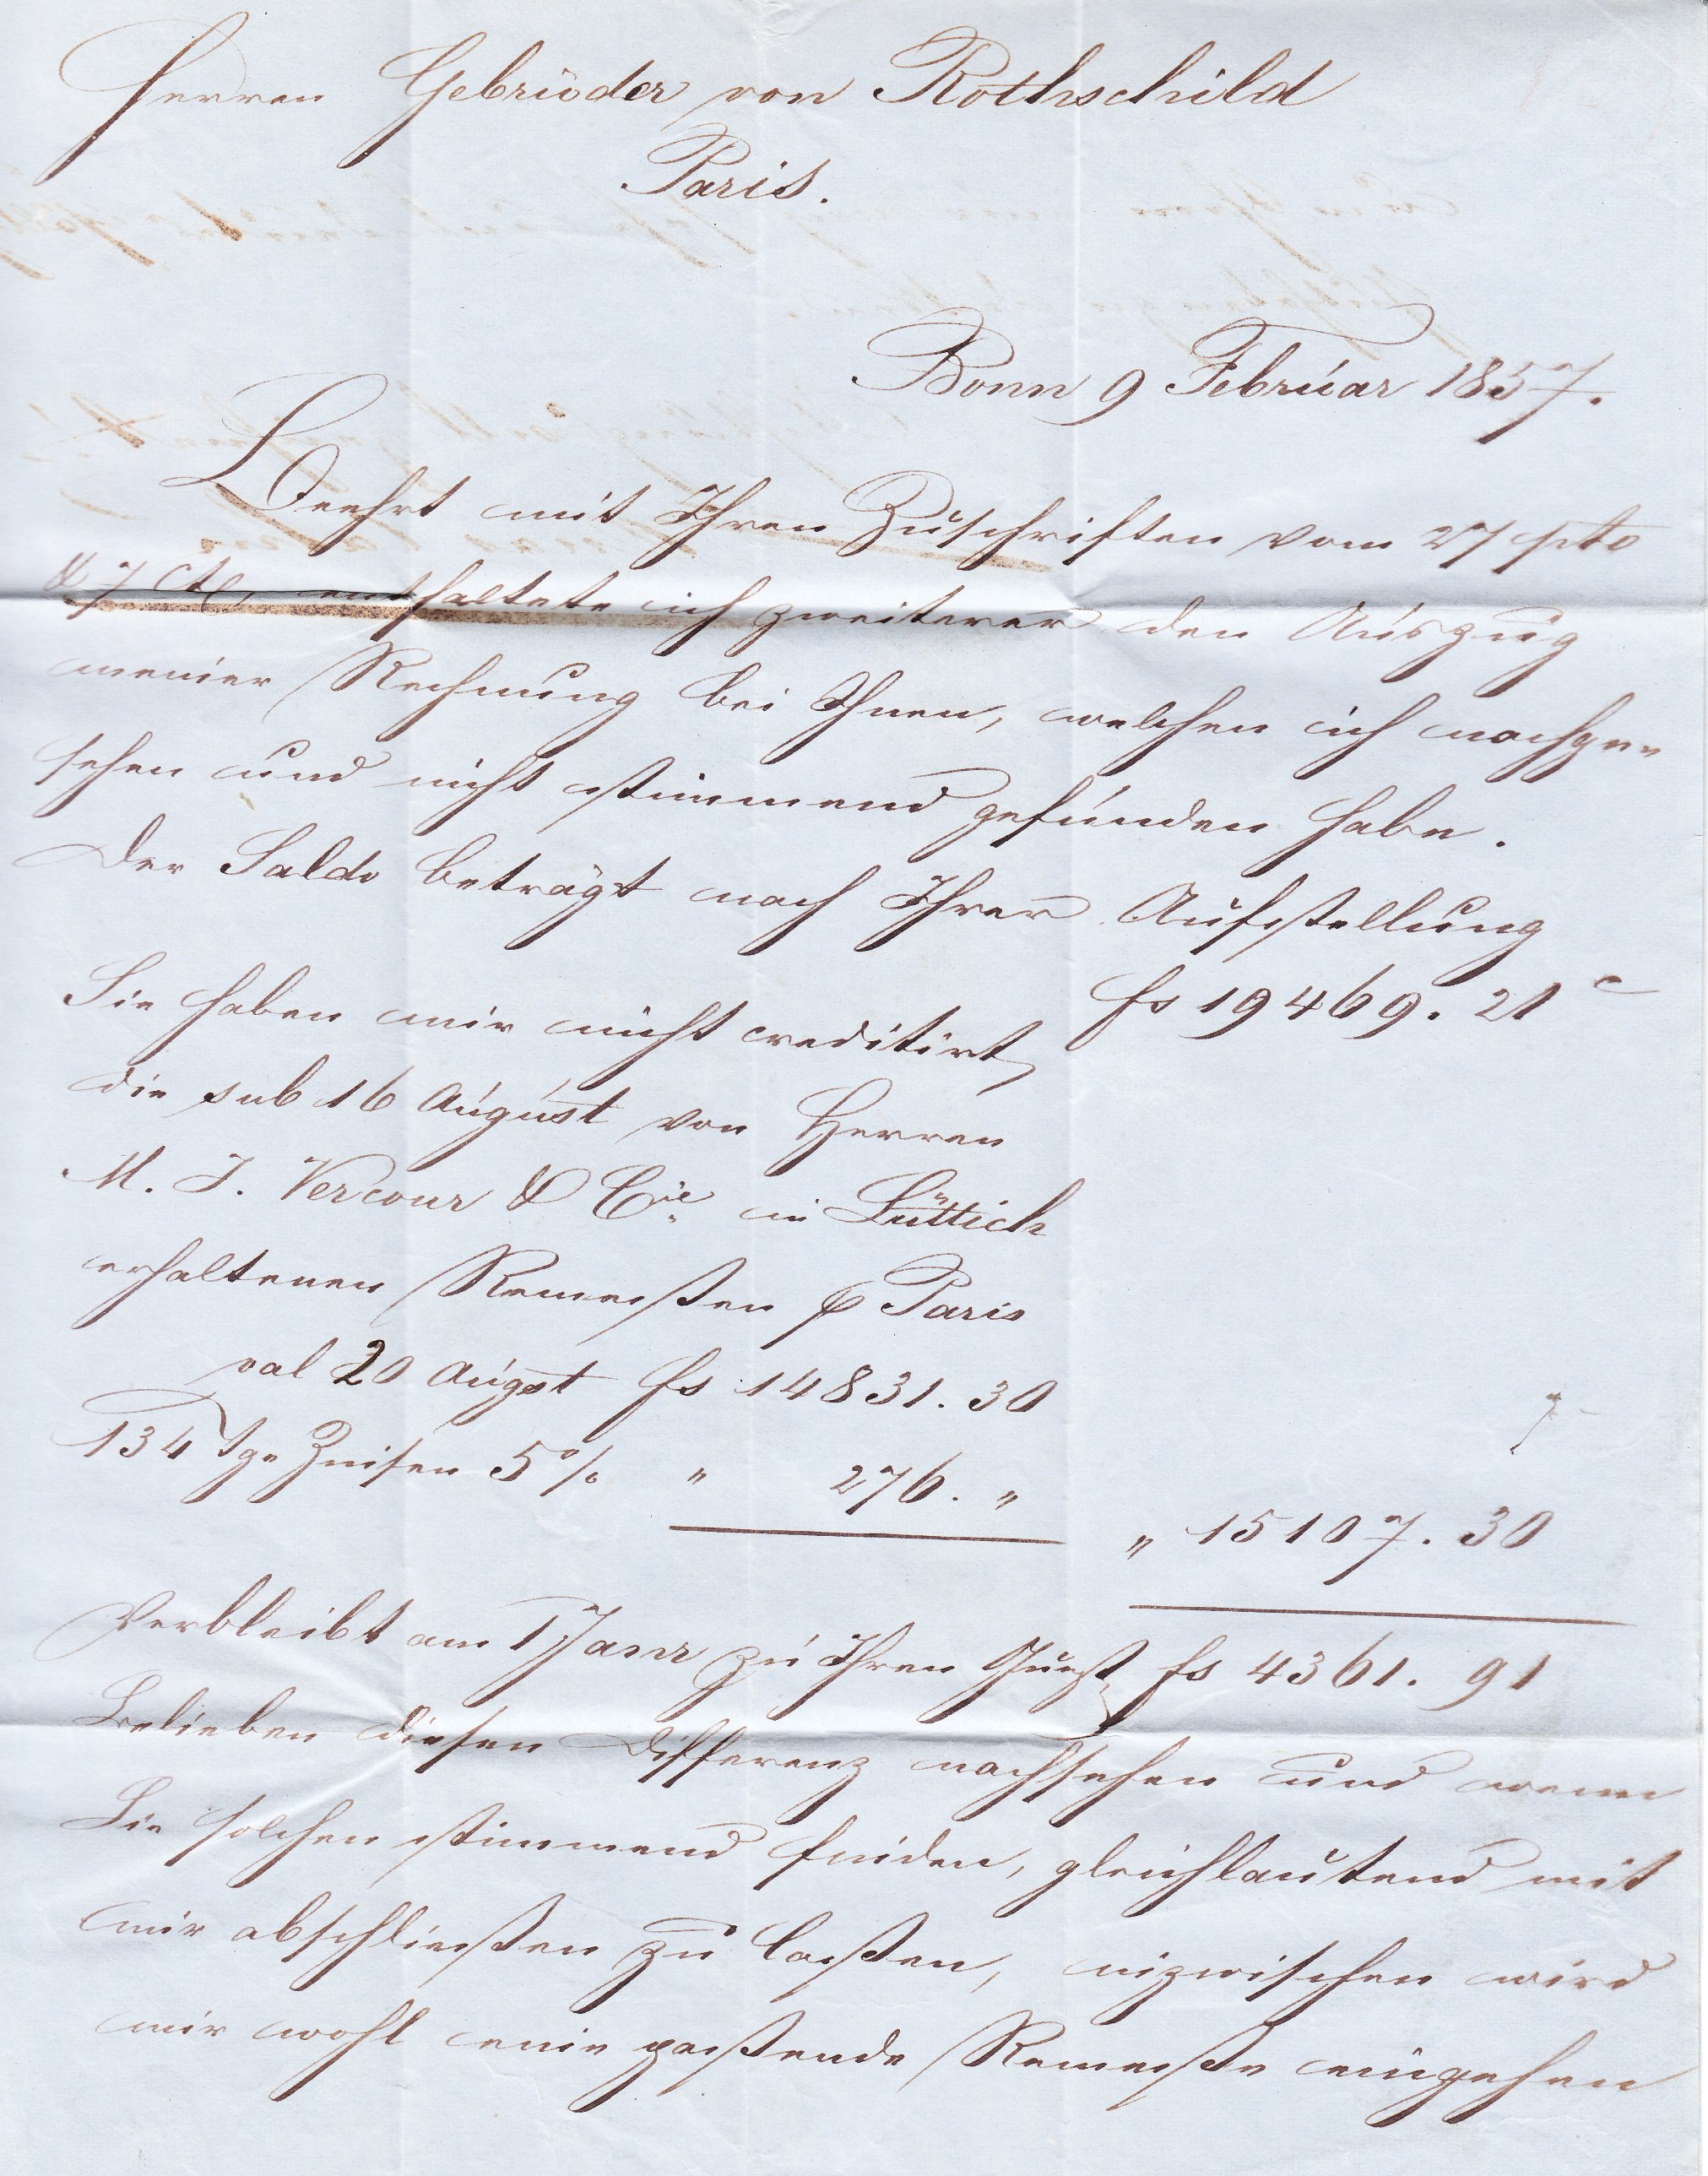 Herren Gebrüder von Rothschild
Paris.
Bonn 9 Februar 1857.
Beehrt mit Ihren Zuschriften vom 27 pto
& 7 Ct, enthaltete ich zweiterer den Auszug
meiner Rechnung bei Ihnen, welchen ich nachge-
sehen und nicht stimmend gefunden habe.
Der Saldo beträgt nach Ihrer Aufstellung
fs 19469. 21 c
Sie haben mir nicht creditirt
die sub 16 August von Herren
M. J. Vercour & Cie in Lüttich
erhaltenen Remeßen p Paris
val 20 Augst fs 14831. 30
134 Tge Zinsen 5% " 276. "
" 15107. 30
Verbleibt am 1 Janr zu Ihren Gunst fs 4361. 91
Belieben diesen Differenz nachsehen und wenn
Sie solchen stimmend finden, gleichlautend mit
mir abschließen zu laßen, inzwischen wird
mir wohl eine paßende Remeße eingehen